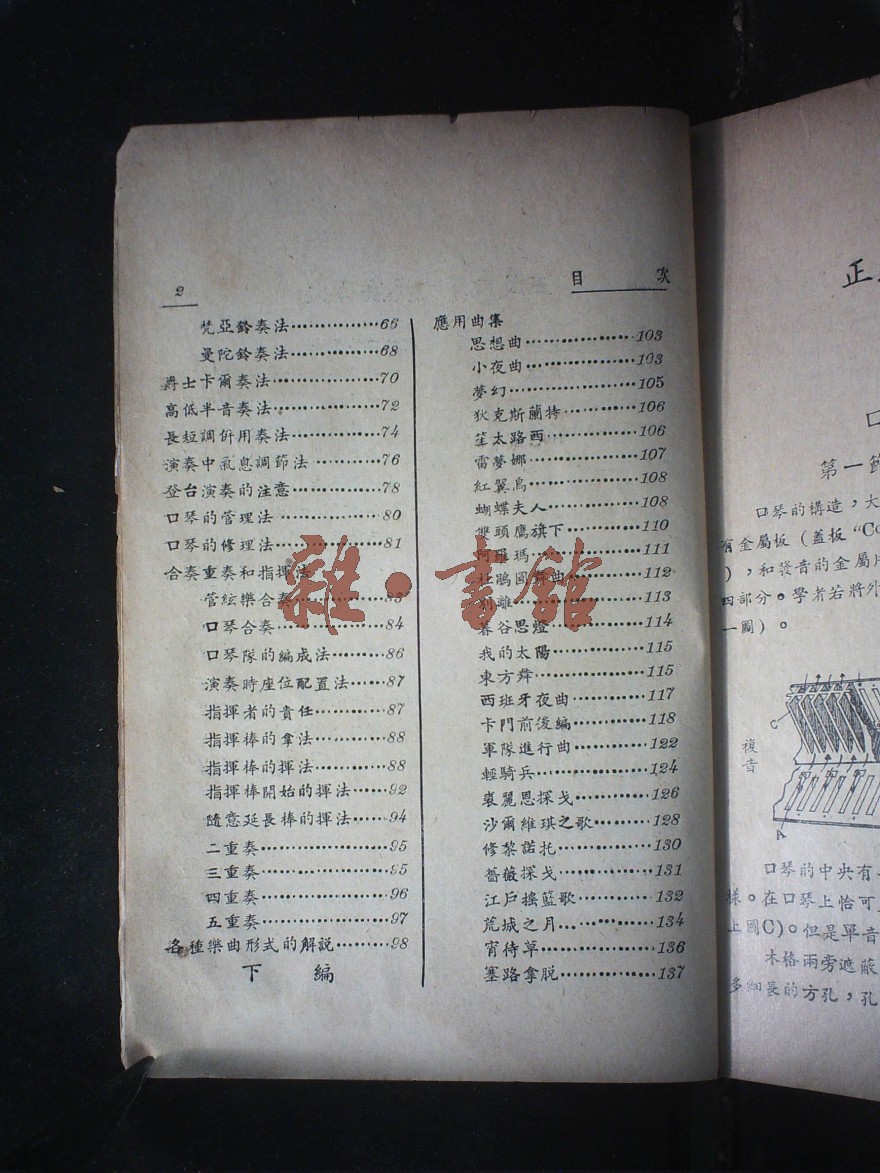 2
目 次
梵亞鈴奏法……………66
曼陀鈴奏法……………68
爵士卡爾奏法……………70
高低半音奏法……………72
長短調併用奏法…………74
演奏中氣息調節法…………76
登台演奏的注意…………78
口琴的管理法……………80
口琴的修理法……………81
合奏重奏和指揮法
管絃樂合奏……………83
口琴合奏……………84
口琴隊的編成法…………86
演奏時座位配置法……87
指揮者的責任…………87
指揮棒的拿法…………88
指揮棒的揮法…………88
指揮棒開始的揮法……92
隨意延長棒的揮法……94
二重奏……………95
三重奏……………95
四重奏……………96
五重奏……………97
各種樂曲形式的解說………98
下 編
應用曲集
思想曲……………103
小夜曲……………103
夢幻……………105
狄克斯蘭特…………106
笙太路西……………106
雷夢娜……………107
紅翼鳥……………108
蝴蝶夫人……………108
雙頭鷹旗下…………110
柯羅瑪……………111
杜鵑圓舞曲…………112
別離……………113
暮谷思燈……………114
我的太陽……………115
東方舞……………115
西班牙夜曲…………117
卡門前後編…………118
軍隊進行曲…………122
輕騎兵……………124
裊麗恩探戈…………126
沙爾維琪之歌………128
修黎諾托……………130
薔薇探戈……………131
江戶搖籃歌…………132
荒城之月……………134
宵待草……………136
塞路拿脱……………137
雜·書館
正
口
第一節
口琴的構造，大
有金屬板（蓋板“Co
），和發音的金屬片
四部分。學者若將外
一圖）。
複音
C
A
口琴的中央有
樣。在口琴上恰可
上圖C)。但是單音
木格兩旁遮蔽
多細長的方孔，孔